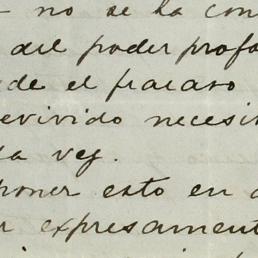 no se ha con
del poder profa
de el fracaso
evivido necesi
da vez.
poner esto en
expresament